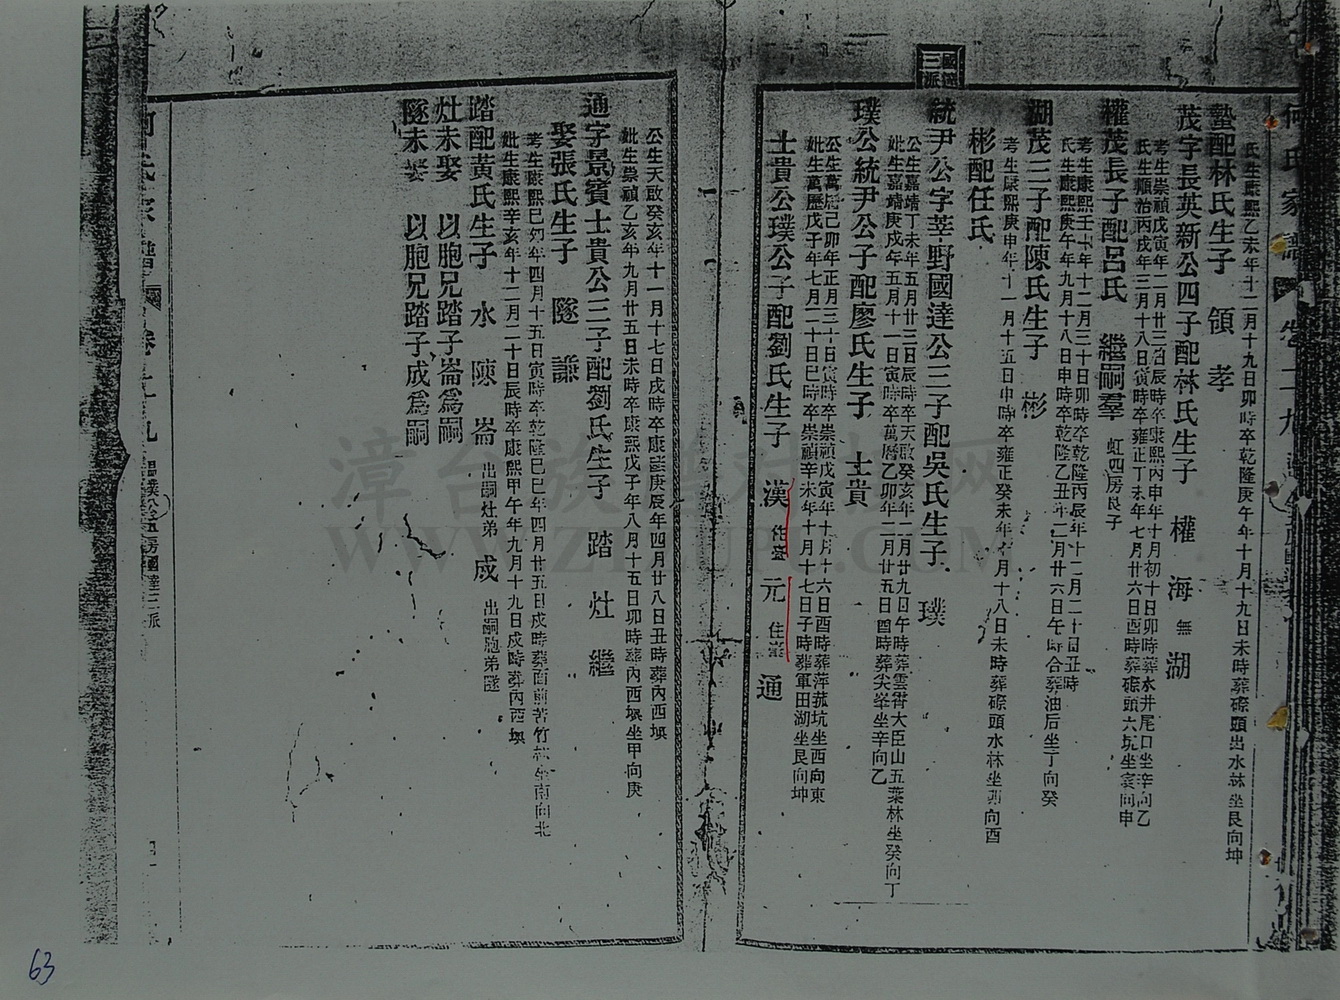 國達
三派
何氏家譜
氏生康熙乙未年十二月十九日卯時卒乾隆庚午年十月十九日未時葬磜頭出水林坐艮向坤
塾配林氏生子 領 孝
茂字長英新公四子配林氏生子 權 海 無 湖
考生崇禎戊寅年二月廿三日辰時卒康熙丙申年十月初十日卯時葬水井尾口坐辛向乙
氏生順治丙戌年三月十八日寅時卒雍正丁未年七月廿六日酉時葬磜頭六坑坐寅向申
權茂長子配呂氏 繼嗣羣 虹四房良子
考生康熙壬年十二月三十日卯時卒乾隆丙辰年十二月二十日丑時
氏生康熙庚午年九月十八日申時卒乾隆乙丑年二月廿六日午時合葬油后坐丁向癸
湖茂三子配陳氏生子 彬
考生康熙庚申年十一月十五日申時卒雍正癸未年月十八日未時葬磜頭水林坐卯向酉
彬配任氏
統尹公字莘野國達公三子配吳氏生子 璞
公生嘉靖丁未年五月廿三日辰時卒天啟癸亥年二月廿九日午時葬雲霄大臣山五葉林坐癸向丁
妣生嘉靖庚戌年五月十一日寅時卒萬曆乙卯年二月廿五日酉時葬尖峯坐辛向乙
璞公統尹公子配廖氏生子 士貴
公生萬曆己卯年正月三十日寅時卒崇禎戊寅年十月十六日酉時葬萍菰坑坐西向東
妣生萬歷戊子年七月二十日巳時卒崇禎辛未年十月十七日子時葬軍田湖坐艮向坤
士貴公璞公子配劉氏生子 漢 住臺 元 住臺 通
公生天啟癸亥年十一月十七日戌時卒康熙庚辰年四月廿八日丑時葬內西埧
妣生崇禎乙亥年九月廿五日未時卒康熙戊子年八月十五日卯時葬內西埧坐甲向庚
通字景賓士貴公三子配劉氏生子 踏 灶 繼
娶張氏生子 隧 謙
考生康熙己卯年四月十五日寅時卒乾隆己巳年四月廿五日戌時葬面前苦竹林坐南向北
妣生康熙辛亥年十二月二十日辰時卒康熙甲午年九月十九日戌時葬內西埧
踏配黃氏生子 水 陳 崙 出嗣灶弟 成 出嗣胞弟隧
灶未娶 以胞兄踏子崙爲嗣
隧未娶 以胞兄踏子成爲嗣
何氏家譜 卷之十九 國達三派
漳台族谱对接网
WWW.ZTZUPU.COM
63